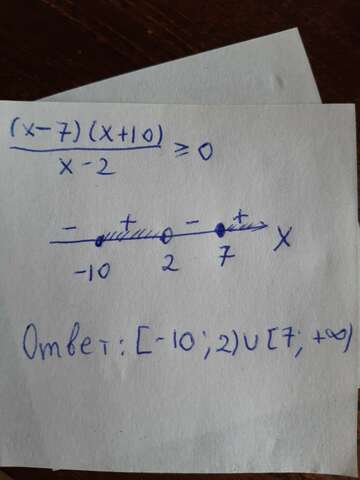 (x-7)(x+10)
x-2
≥ 0
- + - +
-10 2 7 X
Ответ: [-10; 2) ∪ [7; +∞)